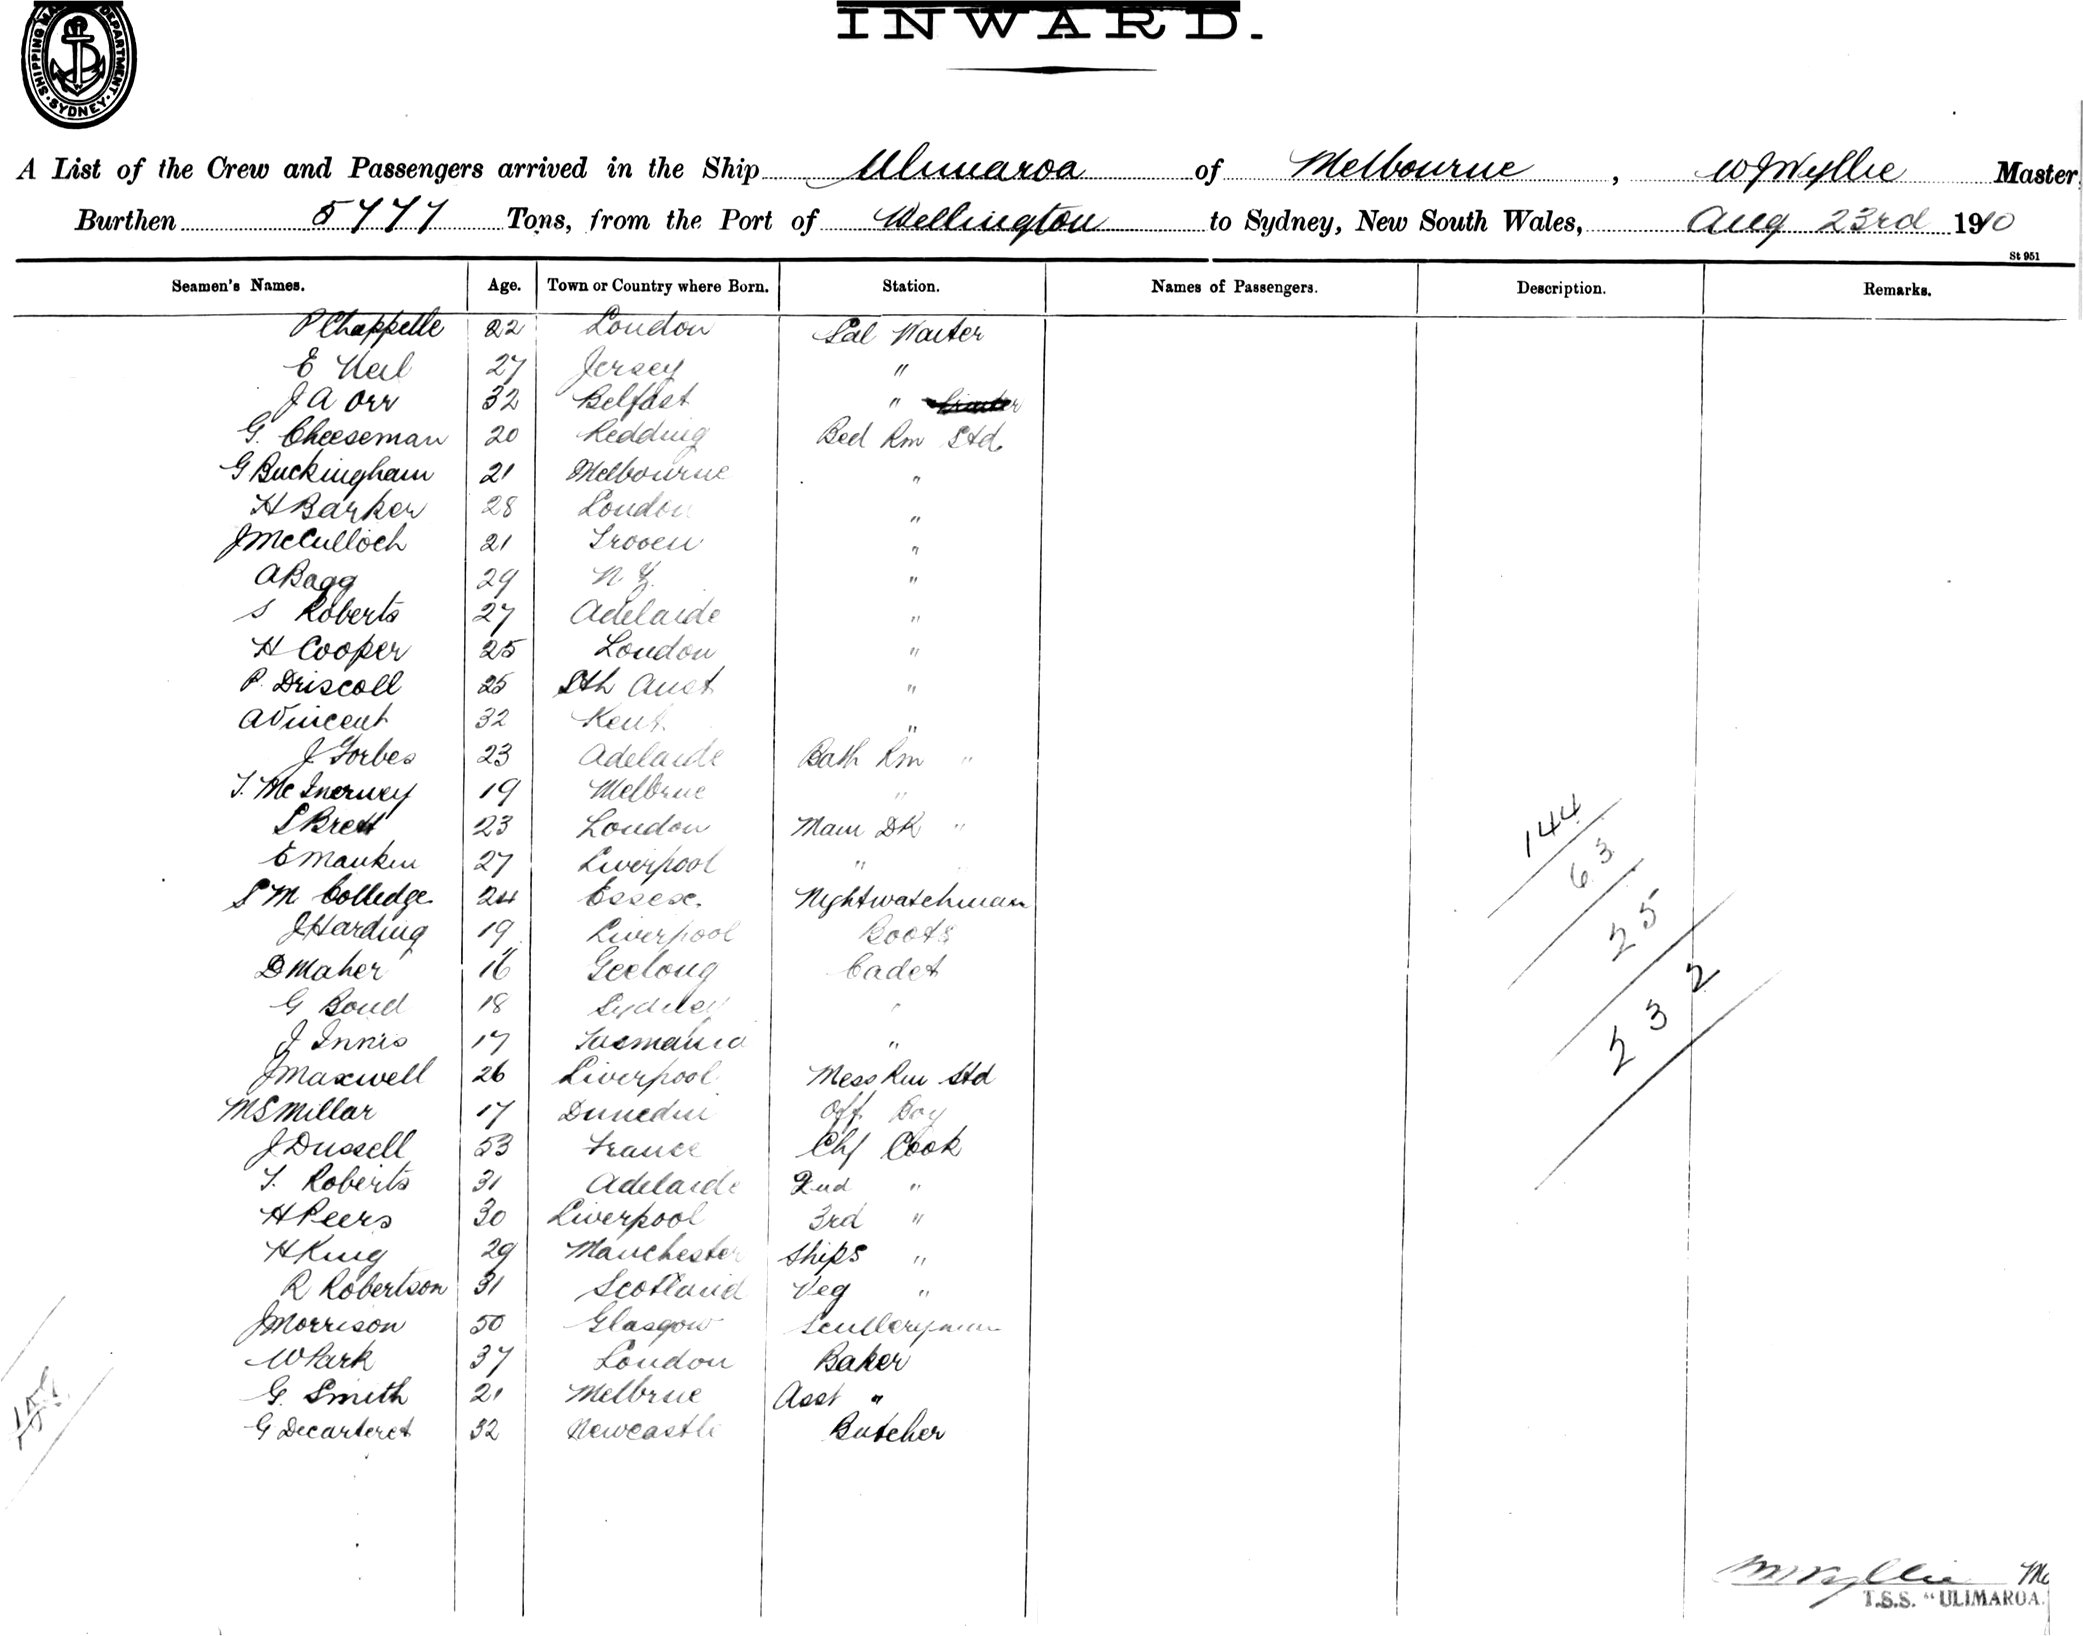 SHIPPING MASTER'S DEPARTMENT · SYDNEY ·
INWARD.
A List of the Crew and Passengers arrived in the Ship Ulimaroa of Melbourne, W J Wyllie Master
Burthen 5777 Tons, from the Port of Wellington to Sydney, New South Wales, Aug 23rd 1910
St 951
Seamen's Names. Age. Town or Country where Born. Station. Names of Passengers. Description. Remarks.
P Chappelle 22 London Sal Waiter
E Neil 27 Jersey "
J A Orr 32 Belfast "
G. Cheeseman 20 Redding Bed Rm Std
G Buckingham 21 Melbourne "
H Barker 28 London "
J McCulloch 21 "
A Bagg 29 N.Z. "
S Roberts 27 Adelaide "
H Cooper 25 London "
P. Driscoll 25 Sth Aust "
A Vincent 32 Kent "
J Forbes 23 Adelaide Bath Rm "
T. McInerney 19 Melbrne "
S Brett 23 London Main DK "
E Mankin 27 Liverpool "
S M Colledge 24 Essex. Nightwatchman
J Harding 19 Liverpool Boots
D Maher 16 Geelong Cadet
G Bond 18 Sydney "
J Innis 17 Tasmania "
J Maxwell 26 Liverpool Mess Rm Std
M S Millar 17 Dunedin Off. Boy
J Dussell 53 France Chf Cook
T. Roberts 31 Adelaide 2nd "
H Peers 30 Liverpool 3rd "
H King 29 Manchester Ships "
R Robertson 31 Scotland Veg "
J Morrison 50 Glasgow Sculleryman
W Park 37 London Baker
G. Smith 21 Melbrne Asst "
G Decarteret 32 Newcastle Butcher
144
63
25
232
W J Wyllie
T.S.S. "ULIMAROA.